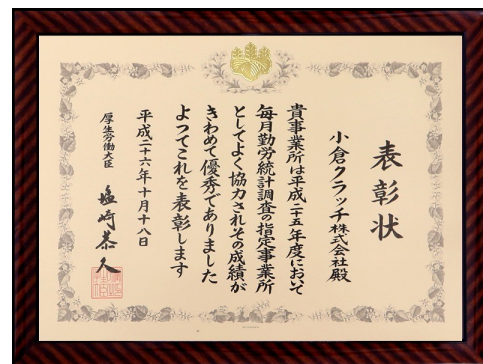 表彰状
小倉クラッチ株式会社殿
貴事業所は平成二十五年度において
毎月勤労統計調査の指定事業所
としてよく協力されその成績が
きわめて優秀でありました
よってこれを表彰します
平成二十六年十月十八日
厚生労働大臣 塩崎恭久